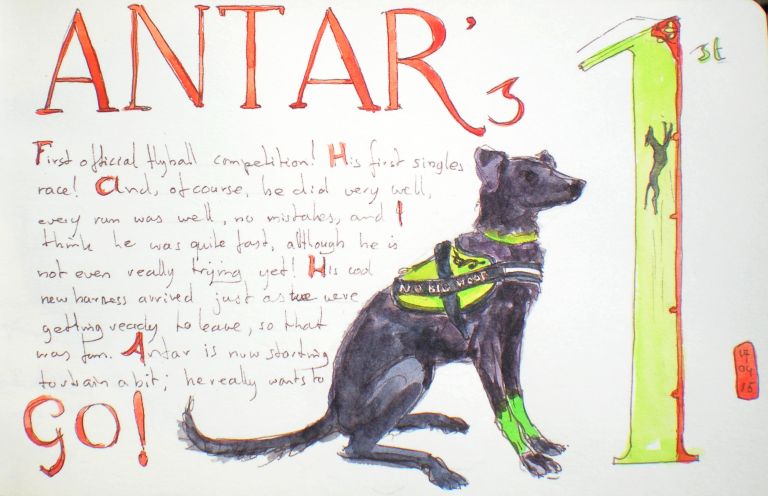 ANTAR's
1st
First official flyball competition! His first singles
race! And, of course, he did very well,
every run was well, no mistakes, and I
think he was quite fast, although he is
not even really trying yet! His cool
new harness arrived just as we were
getting ready to leave, so that
was fun. Antar is now starting
to strain a bit; he really wants to
GO!
NO BIG WOOF
17
04
15